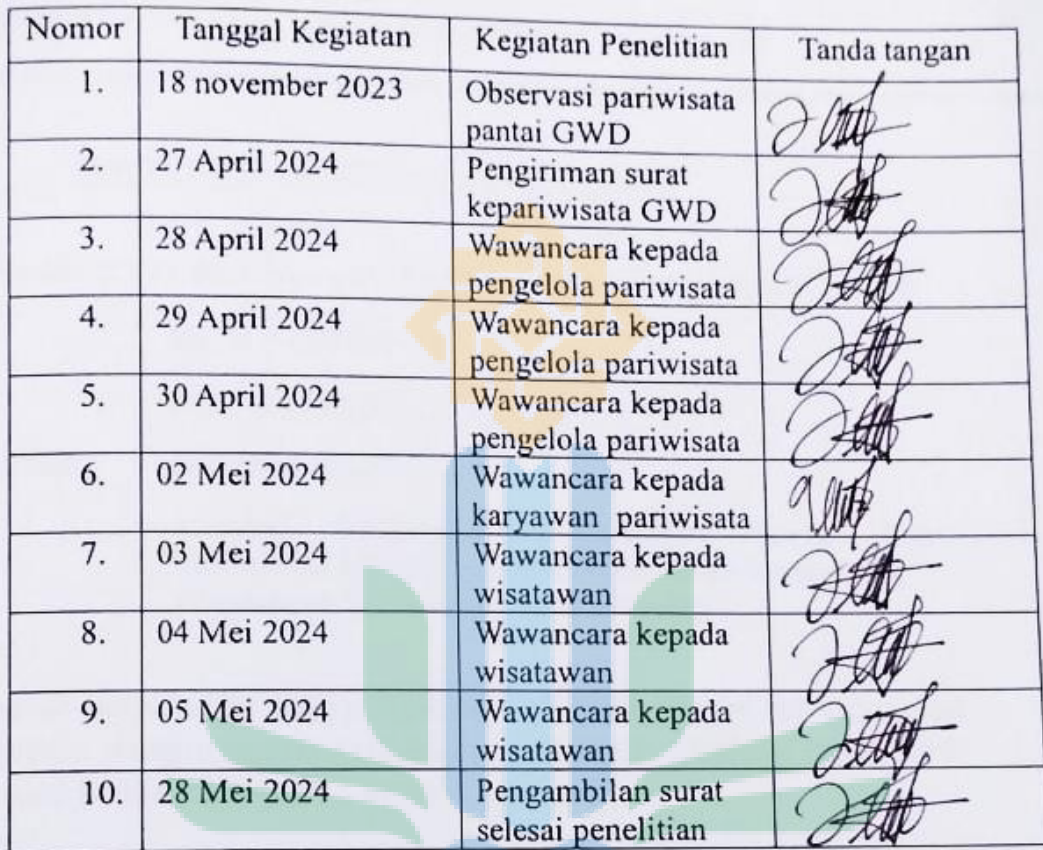 Nomor Tanggal Kegiatan Kegiatan Penelitian Tanda tangan
1. 18 november 2023 Observasi pariwisata
pantai GWD
2. 27 April 2024 Pengiriman surat
kepariwisata GWD
3. 28 April 2024 Wawancara kepada
pengelola pariwisata
4. 29 April 2024 Wawancara kepada
pengelola pariwisata
5. 30 April 2024 Wawancara kepada
pengelola pariwisata
6. 02 Mei 2024 Wawancara kepada
karyawan pariwisata
7. 03 Mei 2024 Wawancara kepada
wisatawan
8. 04 Mei 2024 Wawancara kepada
wisatawan
9. 05 Mei 2024 Wawancara kepada
wisatawan
10. 28 Mei 2024 Pengambilan surat
selesai penelitian